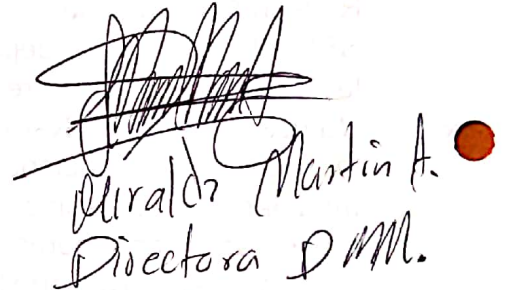 Miralda Martin A.
Directora DMM.